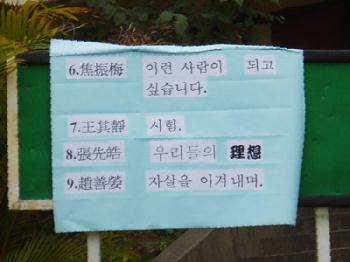 6.焦振梅 이런 사람이 되고
싶습니다.
7.王其靜 시험.
8.張先皓 우리들의 理想
9.趙善榮 자살을 이겨내며.